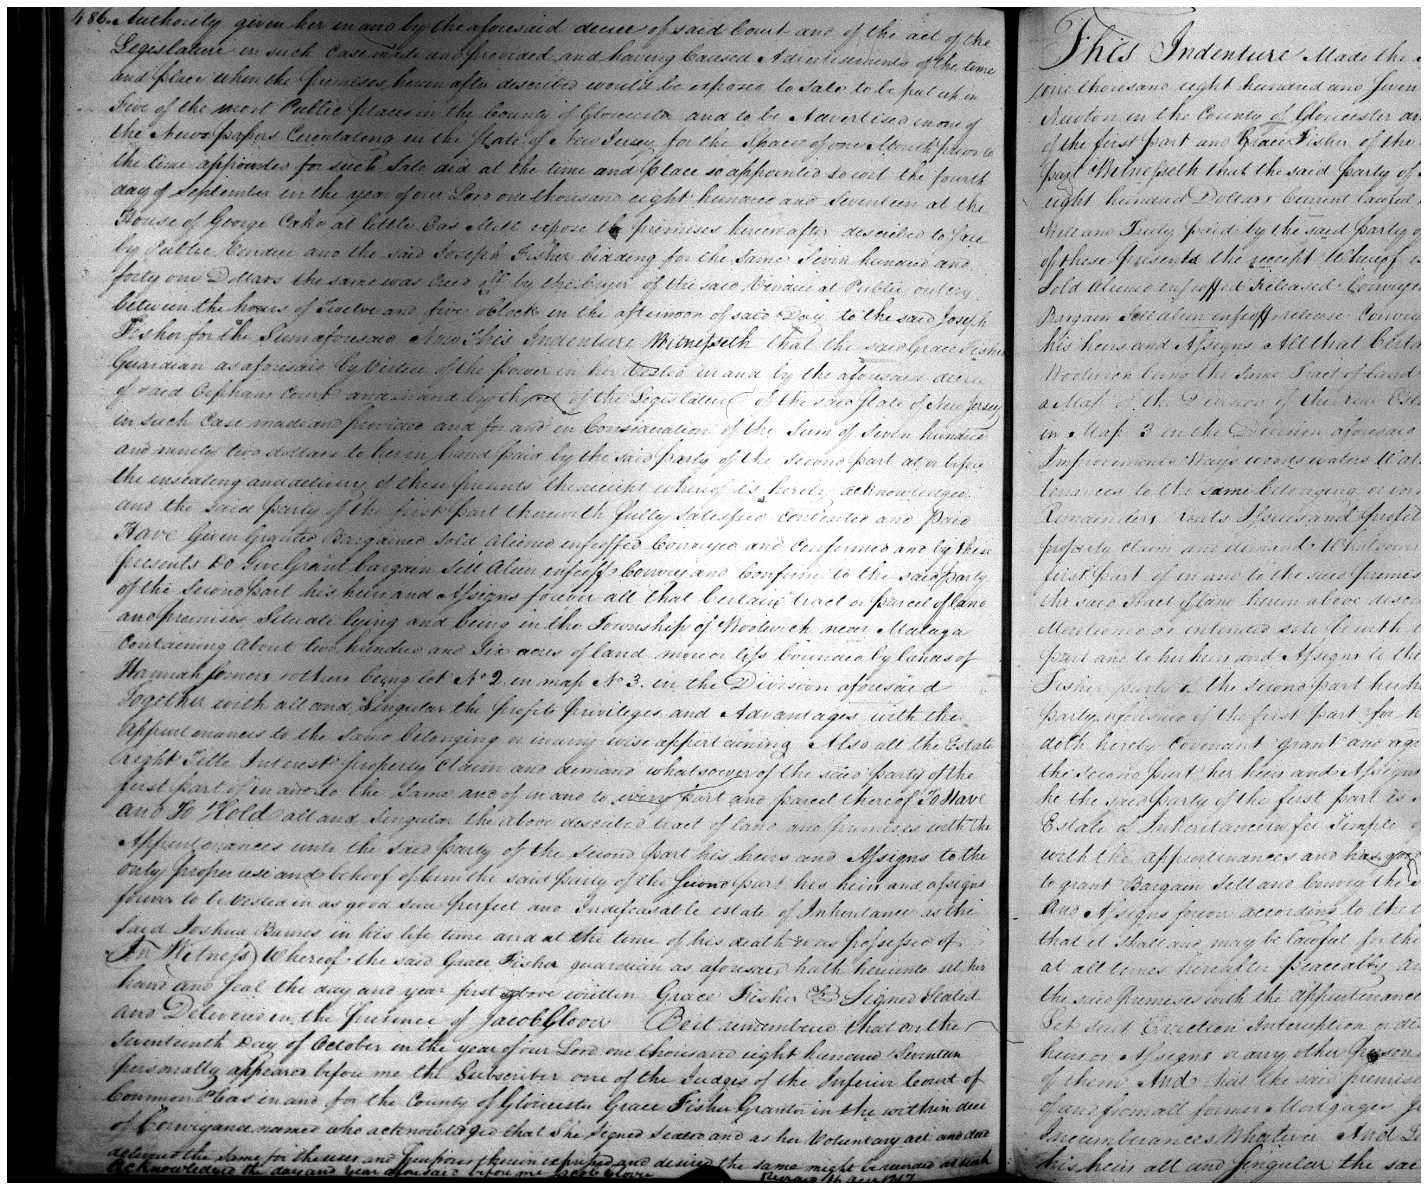 486. Authority given her in and by the aforesaid decree of said Court and of the act of the
Legislature in such case made and provided and having Caused Advertisements of the time
and place when the premises herein after described would be exposed to Sale to be put up in
five of the most Public places in the County of Gloucester and to be Advertised in one of
the News papers Circulating in the State of New Jersey for the Space of one Month prior to
the time appointed for such Sale did at the time and place so appointed to wit the fourth
day of September in the year of our Lord one thousand eight hundred and Seventeen at the
House of George Cake at little Ease Mill expose the premises hereinafter described to Sale
by Public Vendue and the said Joseph Fisher bidding for the same Seven hundred and
forty one Dollars the same was Cried off by the Cryer of the said Vendue at Public outcry
between the hours of Twelve and five oClock in the afternoon of said Day to the said Joseph
Fisher for the Sum aforesaid Now This Indenture Witnesseth that the said Grace Fisher
Guardian as aforesaid by Virtue of the power in her vested in and by the aforesaid decree
of said Orphans Court and in and by the act of the Legislature of the said State of New Jersey
in such Case made and provided and for and in Consideration of the Sum of Seven hundred
and ninety two dollars to her in hand paid by the said party of the second part at or before
the ensealing and delivery of these presents the receipt whereof is hereby acknowledged
and the said party of the first part therewith fully Satisfied contented and paid
Have Given Granted Bargained Sold Aliened enfeoffed Conveyed and Confirmed and by these
presents Do Give Grant bargain Sell Alien enfeoff Convey and Confirm to the said party
of the Second part his heirs and Assigns forever all that Certain tract or parcel of land
and premises Situate lying and being in the Township of Woolwich near Malaga
Containing About two hundred and Six acres of land more or less bounded by lands of
Hannah others being lot No 2 in map No 3. in the Division aforesaid
Together with all and Singular the profits privileges and Advantages with the
appurtenances to the same belonging or in any wise appertaining Also all the Estate
right Title Interest property Claim and demand whatsoever of the said party of the
first part of in and to the Same and of in and to every part and parcel thereof To Have
and To Hold all and Singular the above described tract of land and premises with the
Appurtenances unto the said party of the second part his heirs and Assigns to the
only proper use and behoof of him the said party of the second part his heirs and assigns
forever to be Vested in as good sure perfect and Indefeasable estate of Inheritance as the
said Joshua Barnes in his life time and at the time of his death was possessed of
In Witness Whereof the said Grace Fisher guardian as aforesaid hath hereunto set her
hand and Seal the day and year first above written Grace Fisher Signed Sealed
and Delivered in the presence of Jacob Glover Be it remembered that on the
Seventeenth Day of October in the year of our Lord one thousand eight hundred Seventeen
personally appeared before me the Subscriber one of the Judges of the Inferior Court of
Common Pleas in and for the County of Gloucester Grace Fisher Grantor in the within deed
of Conveyance named who acknowledged that She Signed Sealed and as her Voluntary act and deed
delivered the same for the uses and purposes therein expressed and desired the same might be recorded as such
Acknowledged the day and year aforesaid before me Jacob Glover
This Indenture Made the
one thousand eight hundred and Seven
Newton in the County of Gloucester an
of the first part and Grace Fisher of the
part Witnesseth that the said party of
eight hundred Dollars Current lawful
Well and Truly paid by the said party o
of these presents the receipt Whereof i
Sold Aliened enfeoffed Released Conveyed
Bargain Sell alien enfeoff release Convey
his heirs and Assigns All that Certa
Woolwich being the Same Tract of land
a Map of the Division of the real Esta
in Map 3 in the Division aforesaid
Improvements Ways woods waters Wat
tenances to the same belonging or
Remainders rents Issues and profits
property claim and demand Whatsoeve
first part of in and to the said premis
the said Tract of land herein above desc
Mentioned or intended so to be with
part and to her heirs and Assigns to the
Fisher party of the second part her h
party aforesaid of the first part for h
doth hereby Covenant grant and agr
the second part her heirs and Assigns
he the said party of the first part is
Estate of Inheritance in fee Simple
with the appurtenances and has good
to grant Bargain Sell and Convey the
And Assigns forever according to the
that it shall and may be lawful for the
at all times hereafter peaceably an
the said premises with the appurtenance
Let Suit Eviction Interruption or
heirs or Assigns or any other person
of them And that the said premise
of and from all former Mortgages
Incumbrances Whatever And
his heirs all and Singular the sa